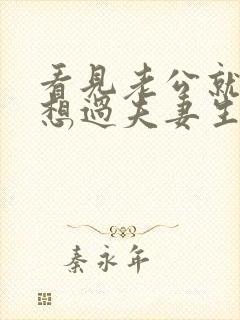 看見老公就
想過夫妻生
秦永年